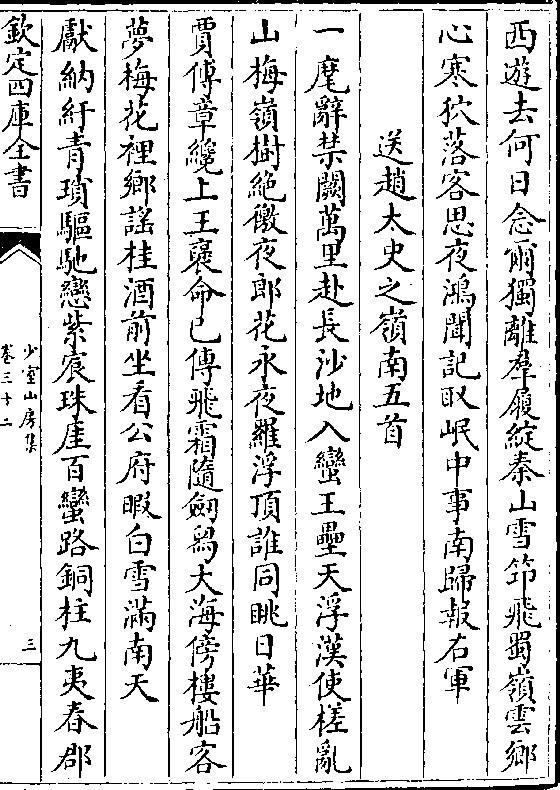 西遊去何日念爾獨離羣屐綻秦山雪筇飛蜀嶺雲鄉
心寒狖落客思夜鴻聞記取岷中事南歸報右軍
送趙太史之嶺南五首
一麾辭禁闕萬里赴長沙地入蠻王壘天浮漢使槎亂
山梅嶺樹絶徼夜郎花永夜羅浮頂誰同眺日華
賈傅章纔上王褒命已傳飛霜隨劒舄大海傍樓船客
夢梅花裡鄉謡桂酒前坐看公府暇白雪滿南天
獻納紆青瑣驅馳戀紫宸珠厓百蠻路銅柱九夷春郡
欽定四庫全書
少室山房集
卷三十二
三